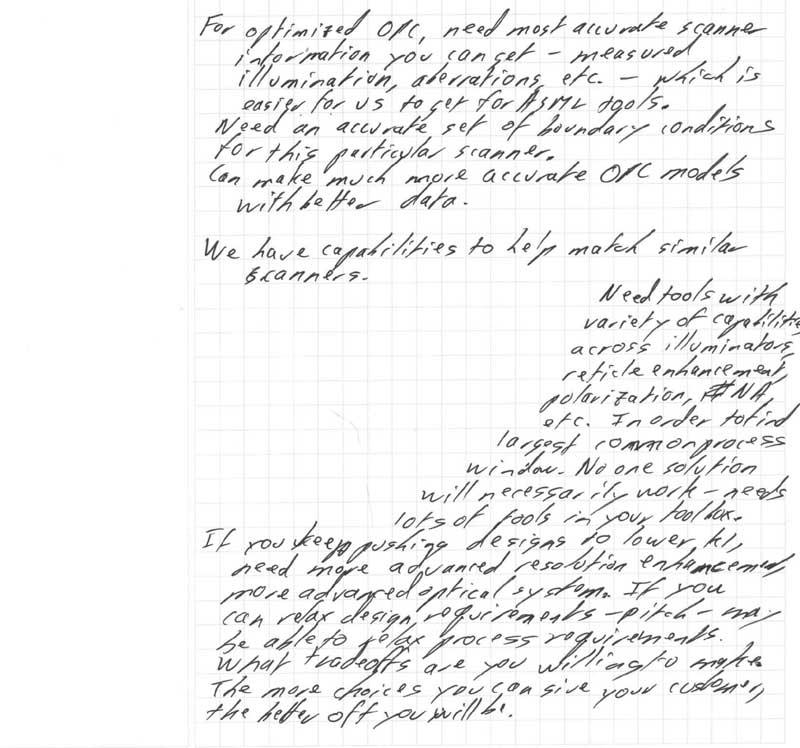 For optimized OPC, need most accurate scanner
information you can get - measured
illumination, aberrations, etc. - which is
easier for us to get for ASML tools.
Need an accurate set of boundary conditions
for this particular scanner.
Can make much more accurate OPC models
with better data.
We have capabilities to help match similar
scanners.
Need tools with
variety of capabilities
across illuminators,
reticle enhancement,
polarization, #NA,
etc. In order to find
largest common process
window. No one solution
will necessarily work - needs
lots of tools in your toolbox.
If you keep pushing designs to lower k1,
need more advanced resolution enhancement,
more advanced optical system. If you
can relax design requirements - pitch - may
be able to relax process requirements.
What tradeoffs are you willing to make.
The more choices you can give your customer,
the better off you will be.